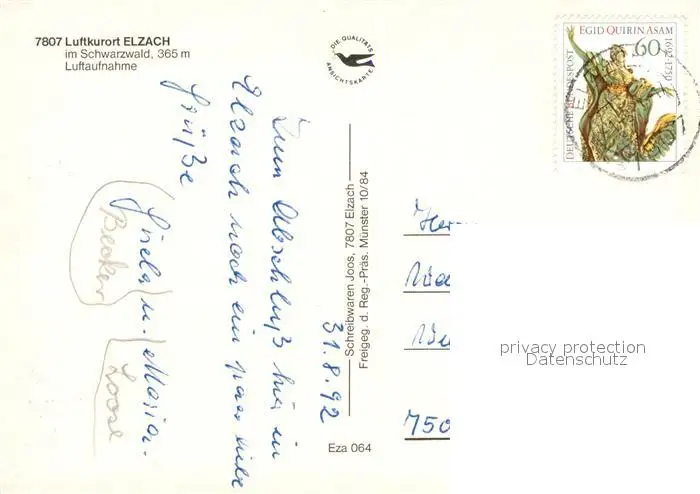 7807 Luftkurort ELZACH
im Schwarzwald, 365 m
Luftaufnahme
DIE QUALITÄTS
ANSICHTSKARTE
EGID QUIRIN ASAM
1692-1750
60
DEUTSCHE BUNDESPOST
31.8.92
Zum Abschluß hier in
Elzach noch ein paar
Grüße
Gisela u. Maria.
Becker
Loose
Schreibwaren Joos, 7807 Elzach
Freigeg. d. Reg.-Präs. Münster 10/84
750
privacy protection
Datenschutz
Eza 064